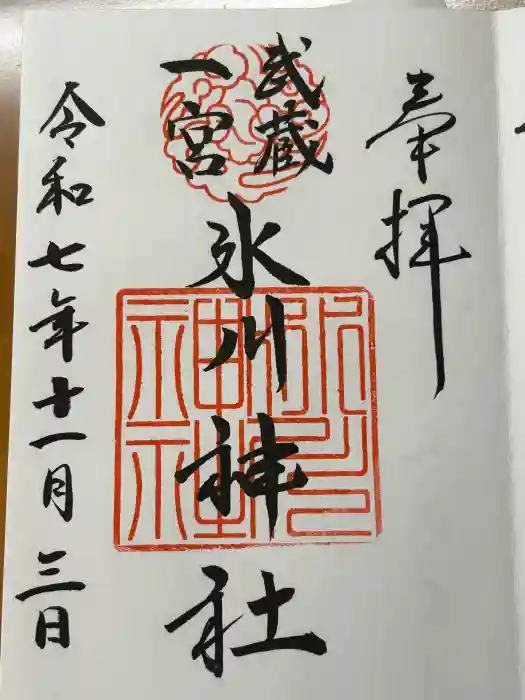 奉拝
武蔵
一宮
氷川神社
令和七年十一月三日
氷川神社